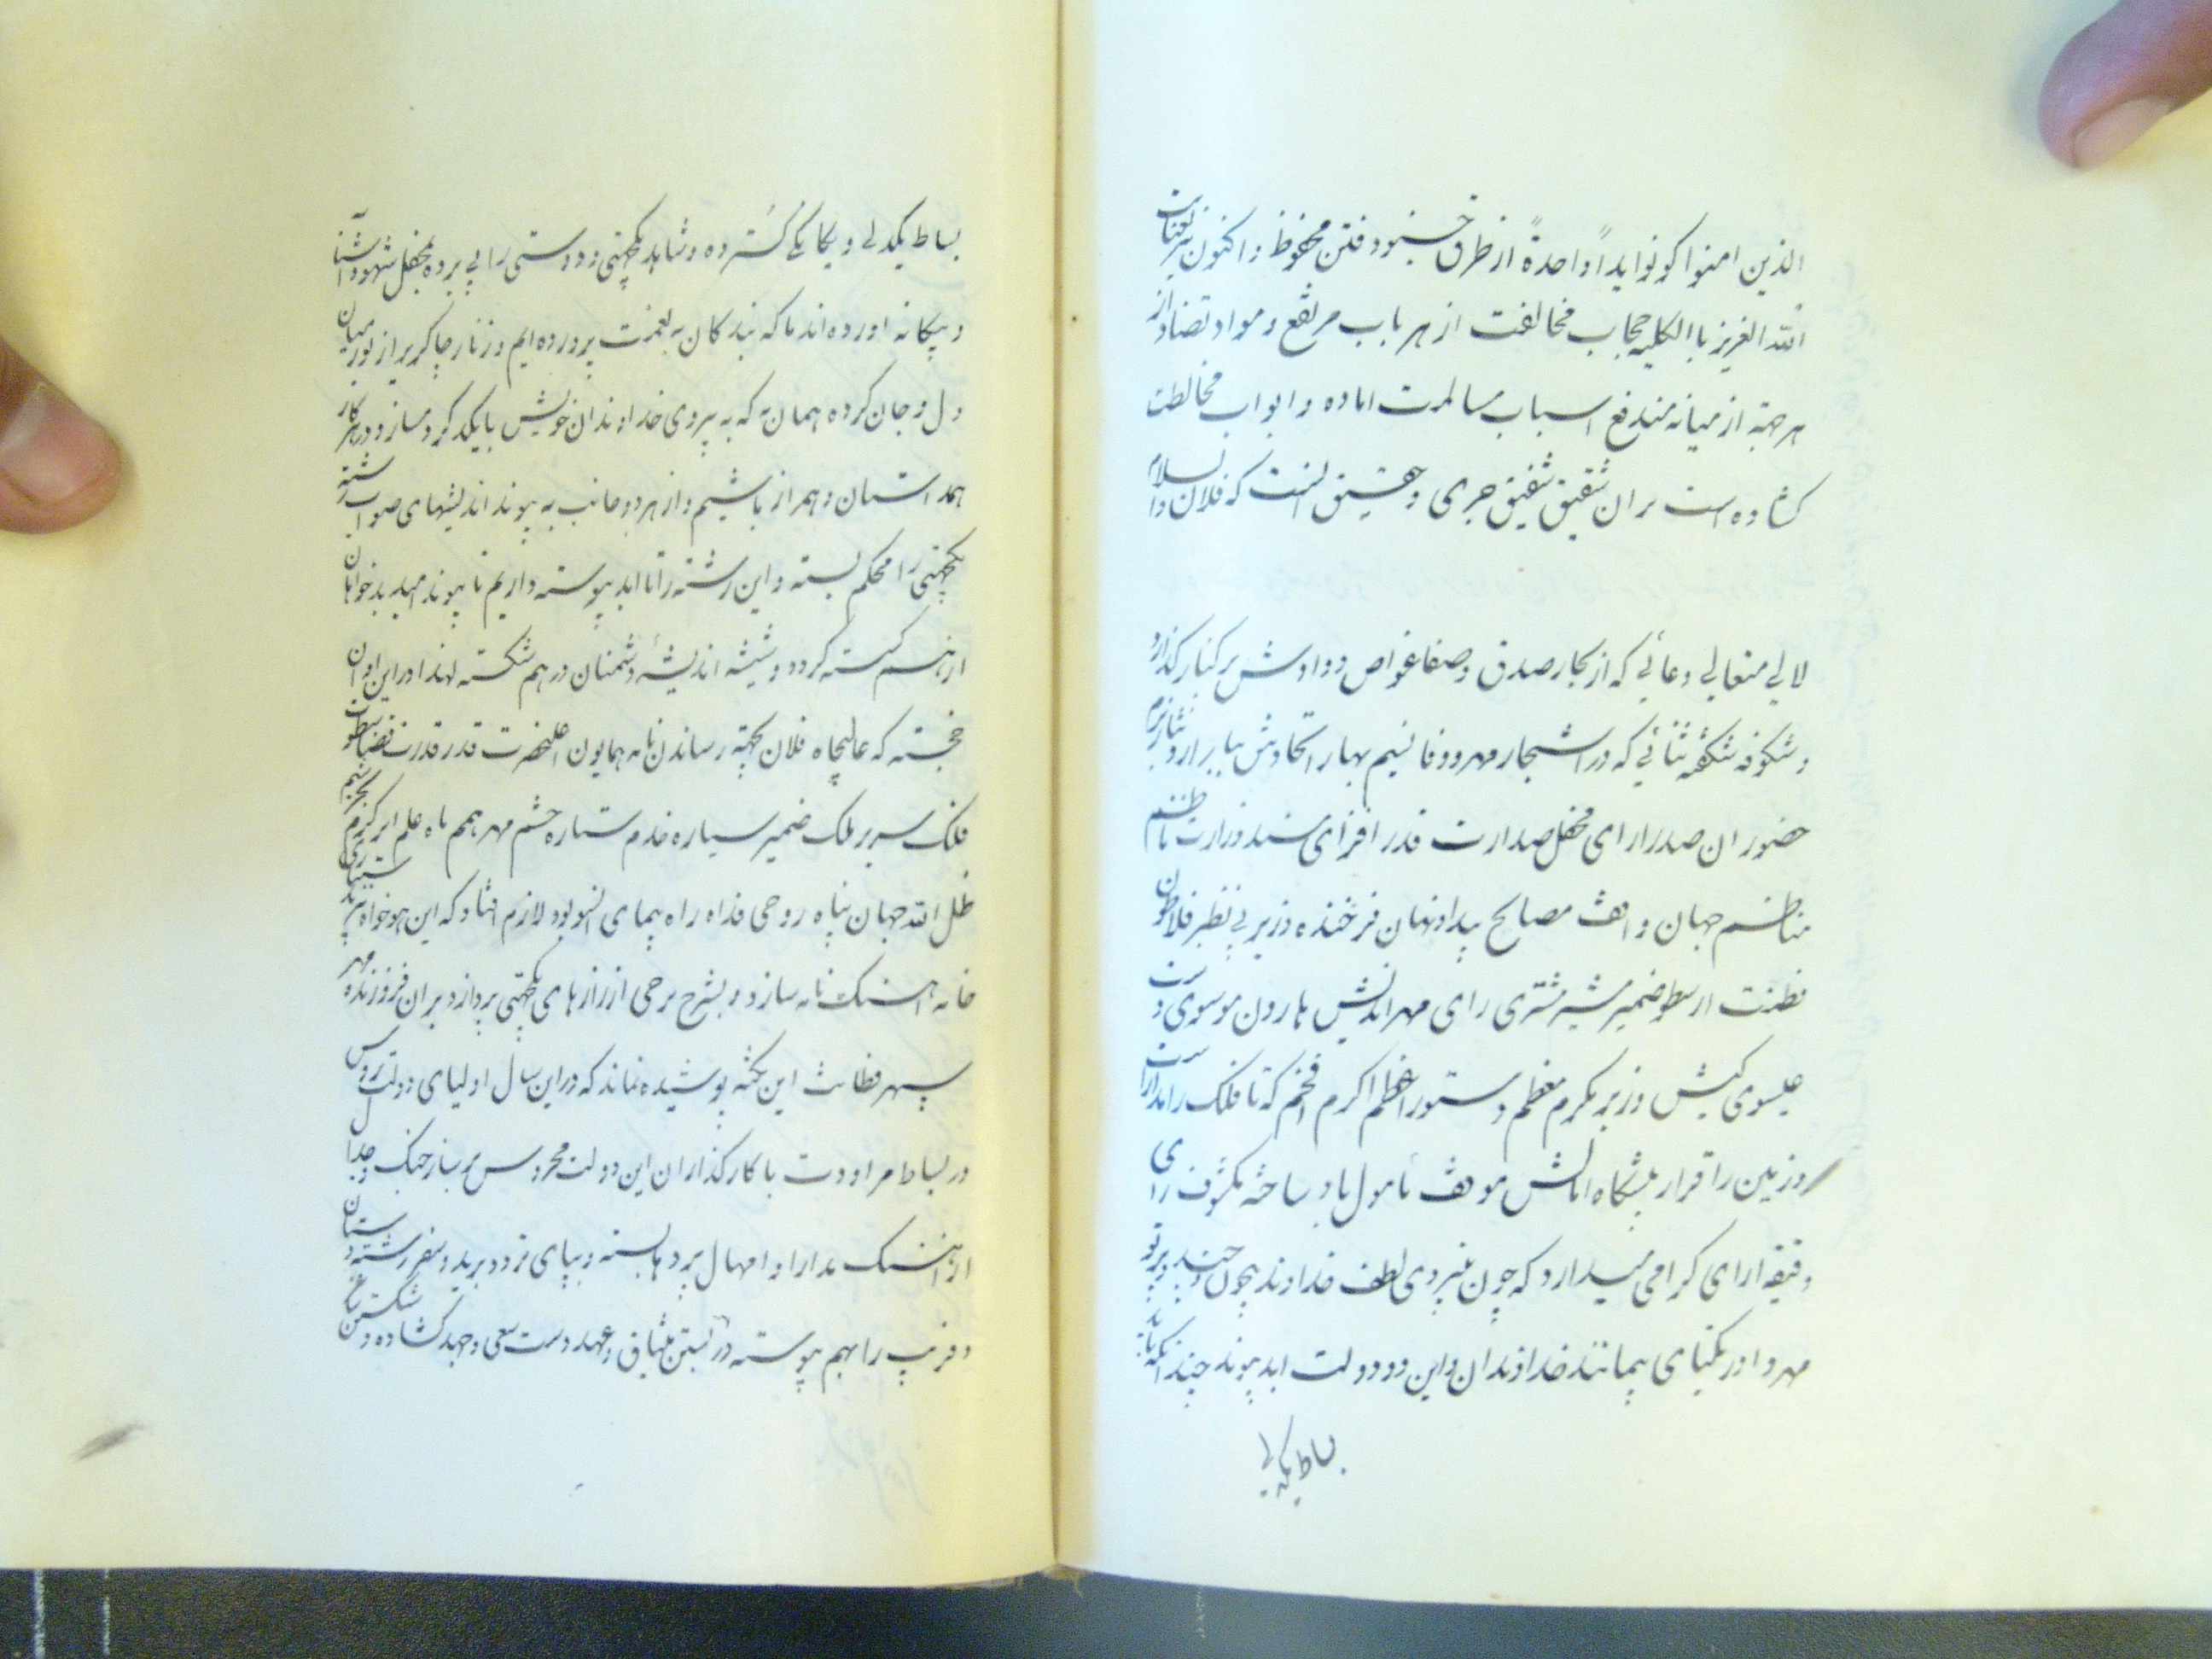 الذین امنوا کونوا یداً واحدةً از طرق جنود فتن محفوظ و اکنون بعنایت
الله العزیز باالکلیه حجاب مخالفت از هر باب مرتفع و مواد تضاد از
هر جهة از میانه مندفع اسباب مسالمت اماده و ابواب مخالطت
کشاده است بر ان شقیق شفیق حری و حقیق است که فلان والسلام
لالی متعالی دعائی که از بحار صدق و صفا غواص ودادش بر کنار کذارد
و شکوفه شکفته ثنائی که در اشجار مهر و وفا نسیم بهار اتحادش ببار ارد نثار بزم
حضور ان صدر ارای محفل صدارت قدر افزای مسند وزارت ناظم
مناظم جهان واقف مصالح پیدا و نهان فرخنده وزیر بی نظیر فلاطون
فطنت ارسطو ضمیر مشیر مشتری رای مهر اندیش هارون موسوی دست
عیسوی کیش وزیر مکرم معظم دستور اعظم اکرم افخم که تا فلک را مدارست
و زمین را قرار پیشکاه امالش موقف مامول باد ساخته مکشوف رای
دقیقه ارای کرامی میدارد که چون بنیروی لطف خداوند بیچون چند پرتو
مهر داور یکتای بیمانند خداوندان این دو دولت ابد پیوند چندانکه باید
بساط یکدلی
بساط یکدلی و یکانکی کسترده و شاهد یکجهتی و دوستی را بی پرده بمحفل شهود اشنا
و بیکانه اورده اند ما که بندکان به نعمت پرورده ایم و زنار چاکری از نور میان
دل و جان کرده همان به که به پیروی خداوندان خویش با یکدکر دمساز و در هر کار
همداستان و همراز باشیم و از هر دو جانب به پیوند اندیشهای صواب رشته
یکجهتی را محکم بسته و این رشته را تا ابد پیوسته داریم تا پیوند امید بدخواهان
از هم کسسته کردد و شیشه اندیشۀ دشمنان در هم شکسته لهذا در این اوان
خجسته که عالیجاه فلان بجهة رساندن نامه همایون اعلیحضرت قدر قدرت قضا سطوت
فلک سریر ملک ضمیر سیاره خدم ستاره حشم مهر همم ماه علم ابر کرم
ظل الله جهان پناه روحی فداه راه پیمای انسو بود لازم افتاد که این هوخواه نیز
خامه اهنک نامه سازد و بشرح برخی از رازهای یکجهتی پردازد بر ان فروزنده مهر
سپهر فطانت این نکته پوشیده نماند که در این سال اولیای دولت روس
در بساط مراودت با کارکذاران این دولت محروس بر ساز جنک و جدال
از اهنک مدارا و امهال پردها بسته و بپای تردد برید و سفیر رشته دستان
و فریب را بهم پیوسته در بستن میثاق و عهد دست سعی و جهد کشاده و